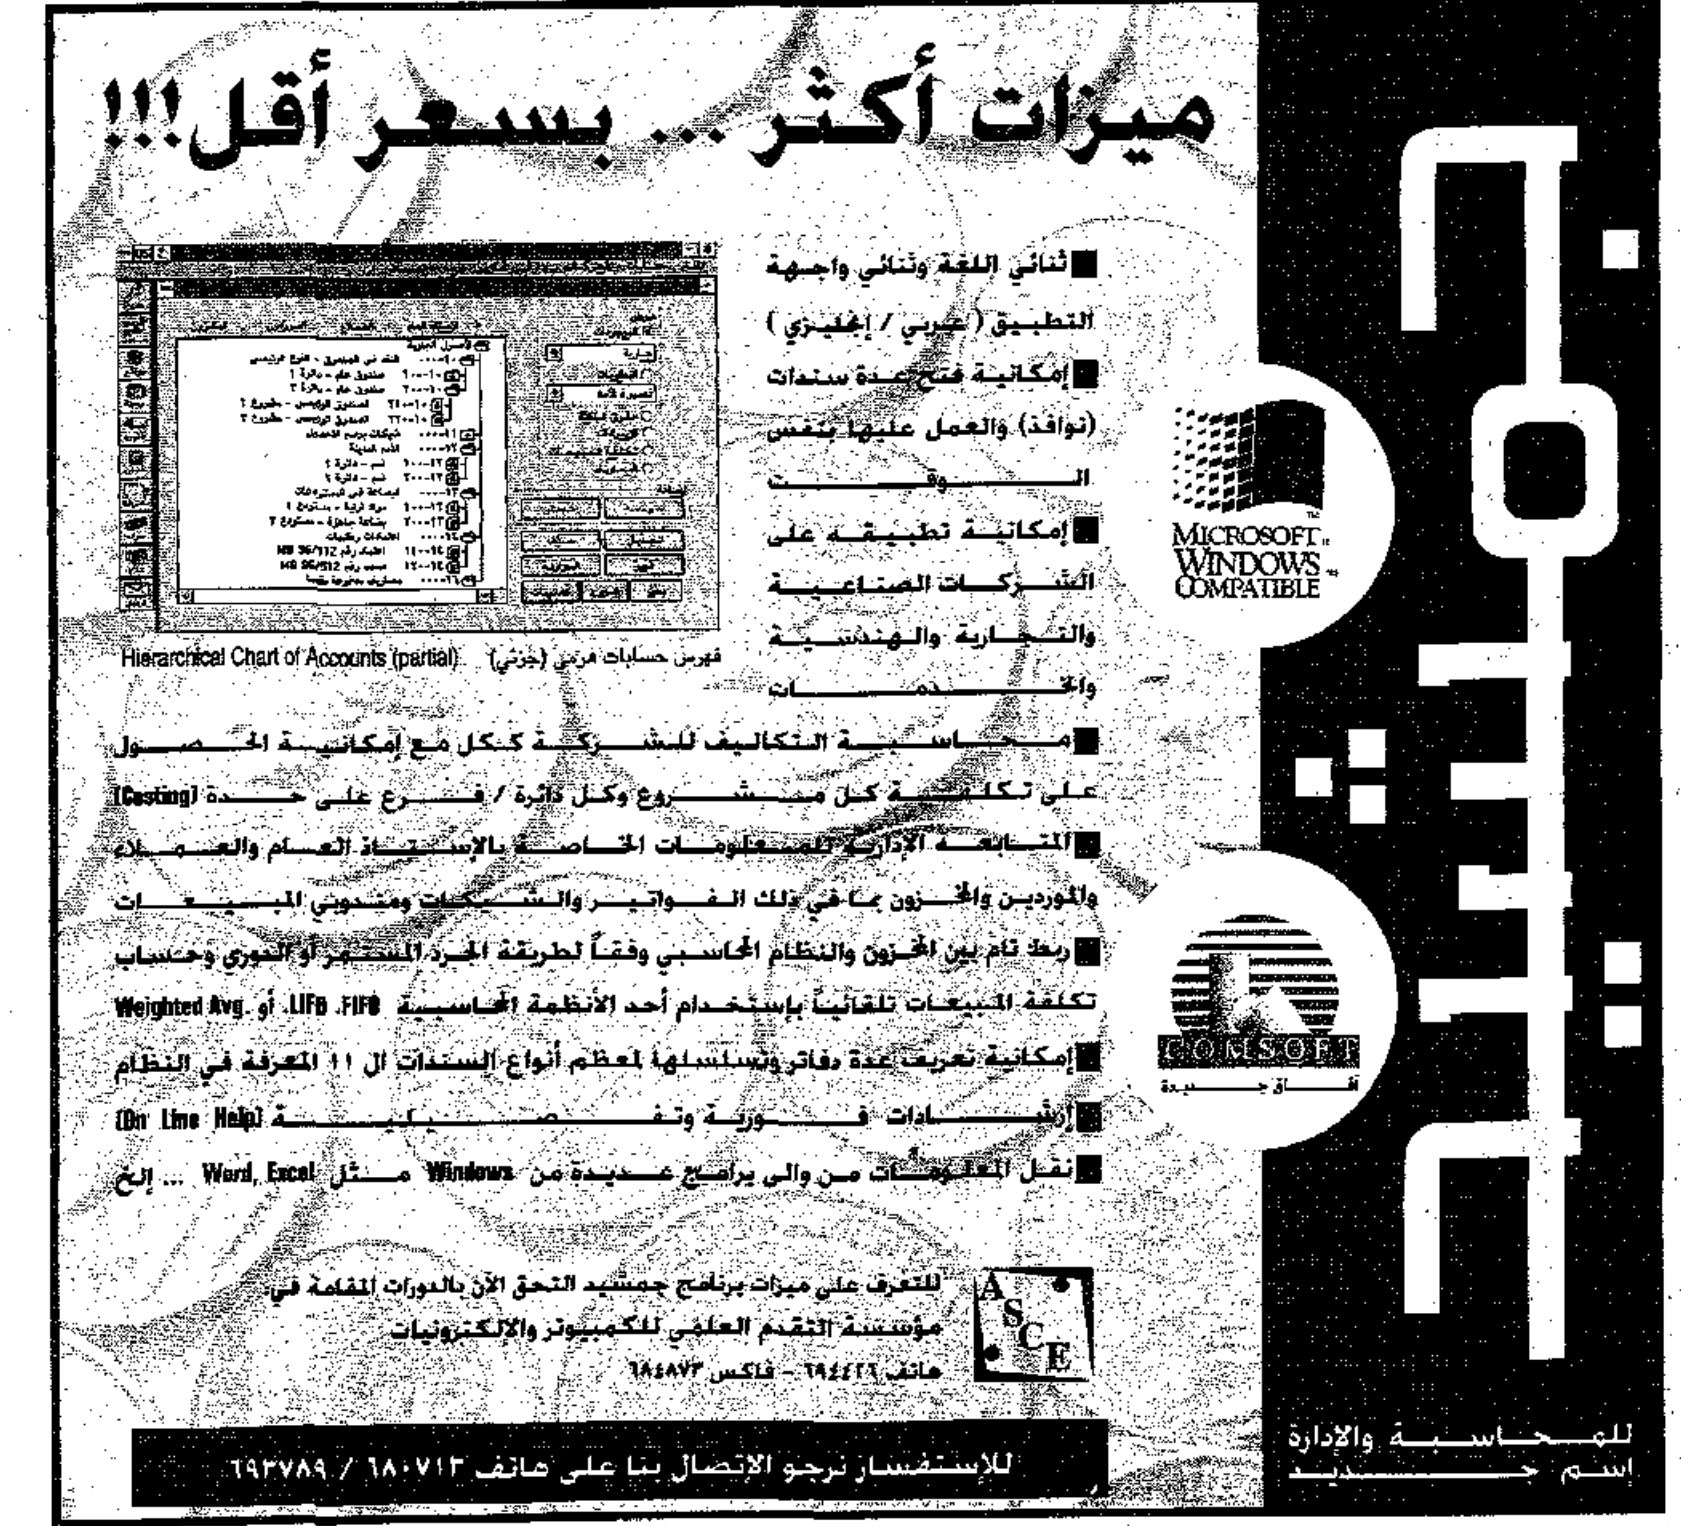 ميزات أكثر ... بسعر أقل!!!
■ ثنائي اللغة وثنائي واجهة
التطبيق ( عربي / إنجليزي )
■ إمكانية فتح عدة سندات
(نوافذ) والعمل عليها بنفس
الوقت
■ إمكانية تطبيقه على
الشركات الصناعية
والتجارية والهندسية
والخدمات
فهرس حسابات هرمي (جزئي) Hierarchical Chart of Accounts (partial)
■ محاسبة التكاليف للشركة ككل مع إمكانية الحصول
على تكلفة كل مشروع وكل دائرة / فرع على حدة (Costing)
■ المتابعة الإدارية للمعلومات الخاصة بالإستاذ العام والعملاء
والموردين والمخزون بما في ذلك الفواتير والشيكات ومندوبي المبيعات
■ ربط تام بين المخزون والنظام المحاسبي وفقاً لطريقة الجرد المستمر أو الدوري وحساب
تكلفة المبيعات تلقائياً بإستخدام أحد الأنظمة المحاسبية FIFO, LIFO, أو Weighted Avg.
■ إمكانية تعريف عدة دفاتر وتسلسلها لمعظم أنواع السندات ال ١١ المعرفة في النظام
■ إرشادات فورية وتفصيلية (On Line Help)
■ نقل المعلومات من والى برامج عديدة من Windows مثل Word, Excel ... إلخ
للتعرف على ميزات برنامج جمشيد التحق الآن بالدورات المقامة في:
مؤسسة التقدم العلمي للكمبيوتر والإلكترونيات
هاتف ٦٩٤٤٢٦ - فاكس ٦٨٤٨٧٣
ASCE
للإستفسار نرجو الإتصال بنا على هاتف ٦٨٠٧١٣ / ٦٩٣٧٨٩
MICROSOFT
WINDOWS
COMPATIBLE
COMSOFT
آفاق جديدة
جمشيد
للمحاسبة والإدارة
إسم جديد